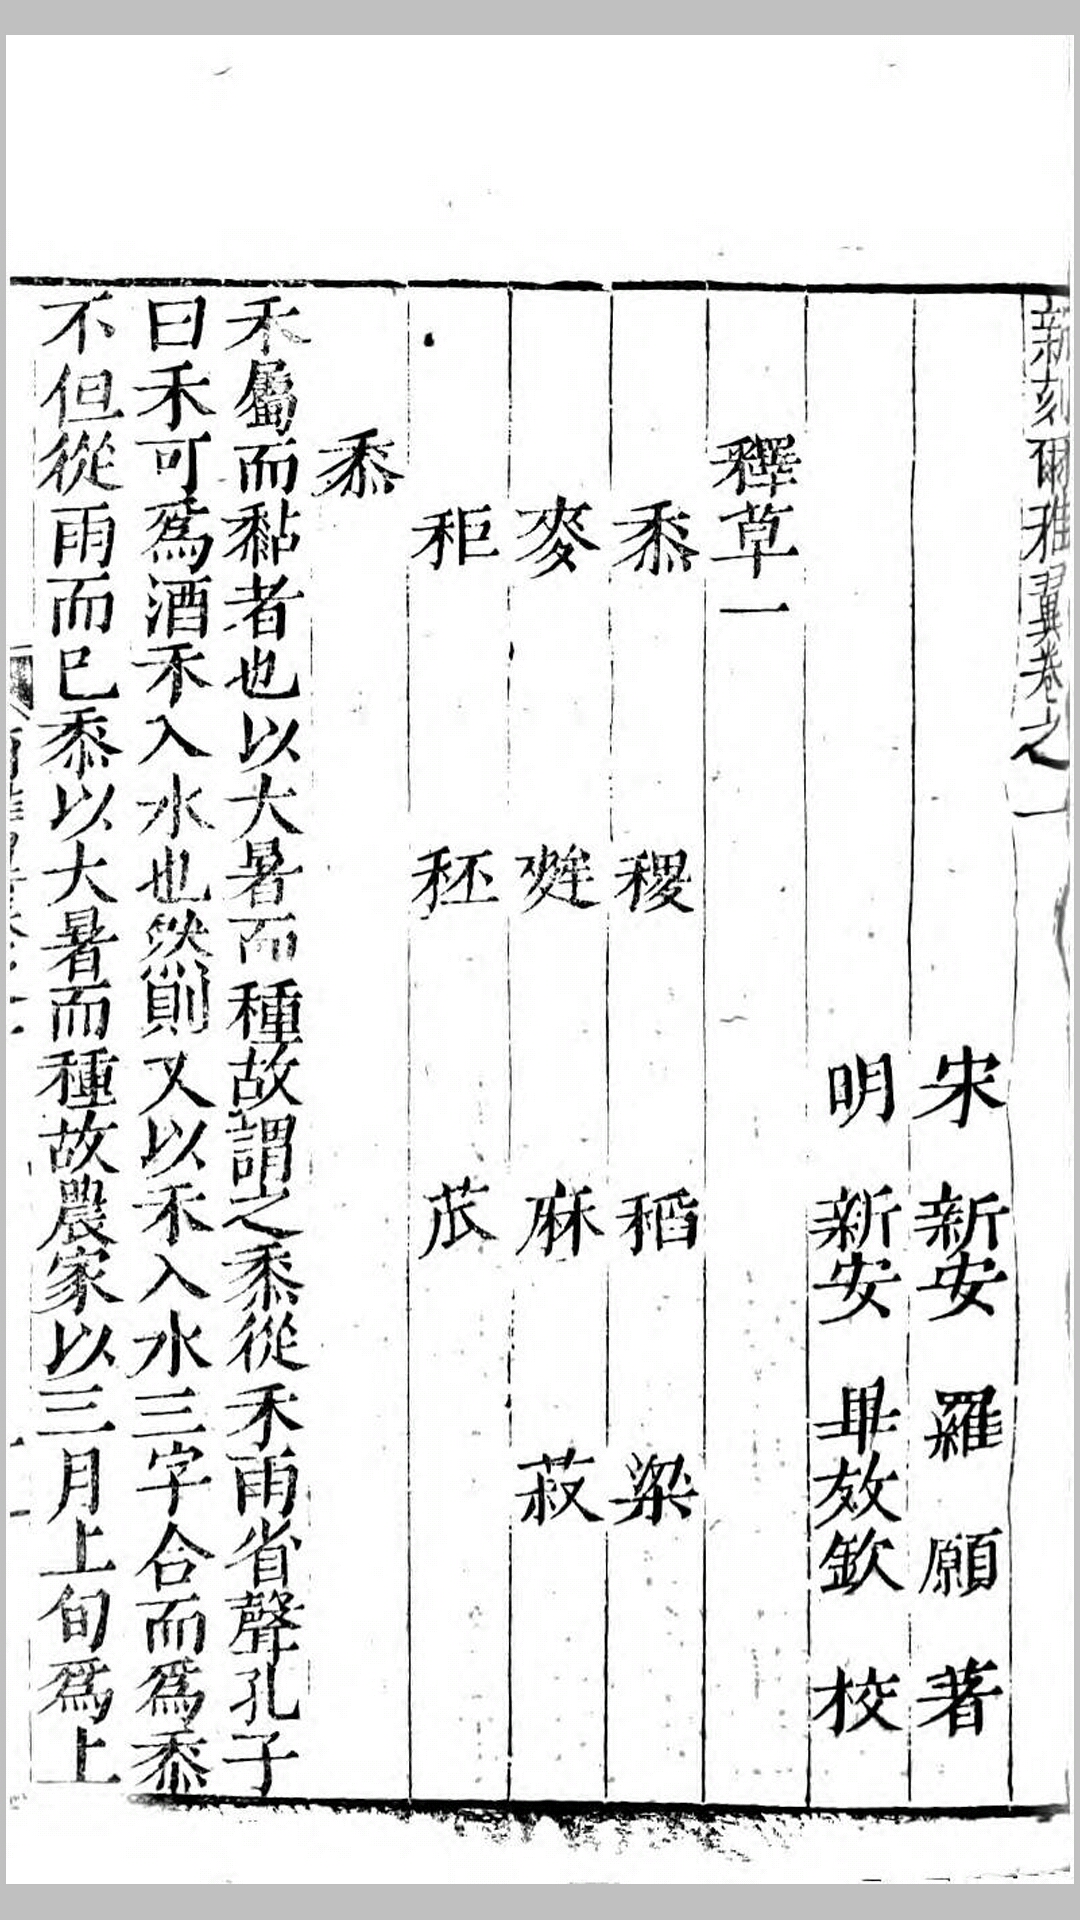 新刻爾雅翼卷之一
宋 新安 羅願 著
明 新安 畢效欽 校
釋草一
黍 稷 稻 粱
麥 麰 麻 菽
秬 秠 苽
黍
禾屬而黏者也以大暑而種故謂之黍從禾雨省聲孔子
曰禾可爲酒禾入水也然則又以禾入水三字合而爲黍
不但從雨而已黍以大暑而種故農家以三月上旬爲上